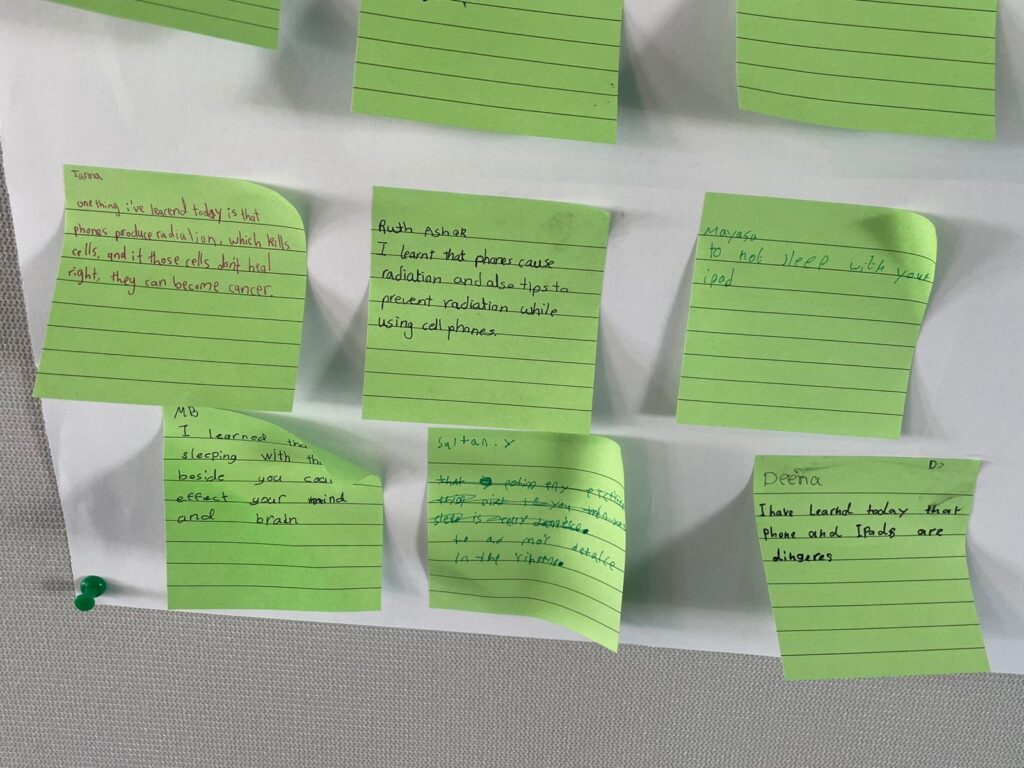 Janna
one thing i've learend today is that
phones produce radiation, which kills
cells, and if those cells don't heal
right, they can become cancer.
Ruth Ashok
I learnt that phones cause
radiation and also tips to
prevent radiation while
using cell phones.
Mayasa
to not sleep with your
ipad
MB
I learned tha
sleeping with th
beside you coul
effect your mind
and brain
Sultan.Y
that
next to you when you
sleep is really
to ad mor detalce
in the
D2
Deena
I have learnd today that
phone and IPads are
dingeres